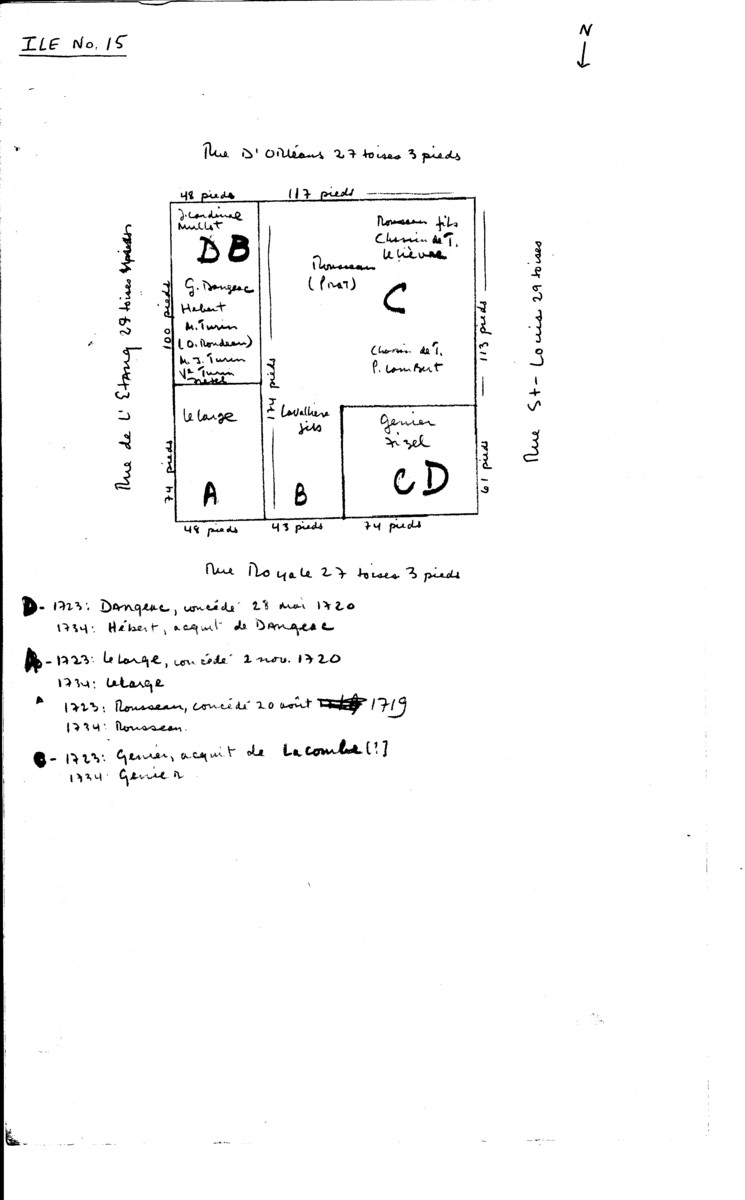 ILE No. 15
N
Rue D'Orléans 27 toises 3 pieds
48 pieds
117 pieds
J. Cardinal
Mullot
D B
G. Dangeac
Hébert
M. Turin
(D. Rondeau)
M. J. Turin
Vve Turin
Rousseau fils
Chemin de T.
Lelièvre
Rousseau
(Prat)
C
Chemin de T.
P. Lambert
Rue de L'Etang 29 toises
100 pieds
174 pieds
113 pieds
Rue St-Louis 29 toises
Le Large
A
Lavallière
fils
B
Genier
Fizel
C D
74 pieds
61 pieds
48 pieds
43 pieds
74 pieds
Rue Royale 27 toises 3 pieds
D - 1723: Dangeac, concédé 28 mai 1720
1734: Hébert, acquit de Dangeac
A - 1723: Le Large, concédé 2 nov. 1720
1734: Le Large
1723: Rousseau, concédé 20 août 1719
1734: Rousseau
C - 1723: Genier, acquit de Lacombe [?]
1734: Genier